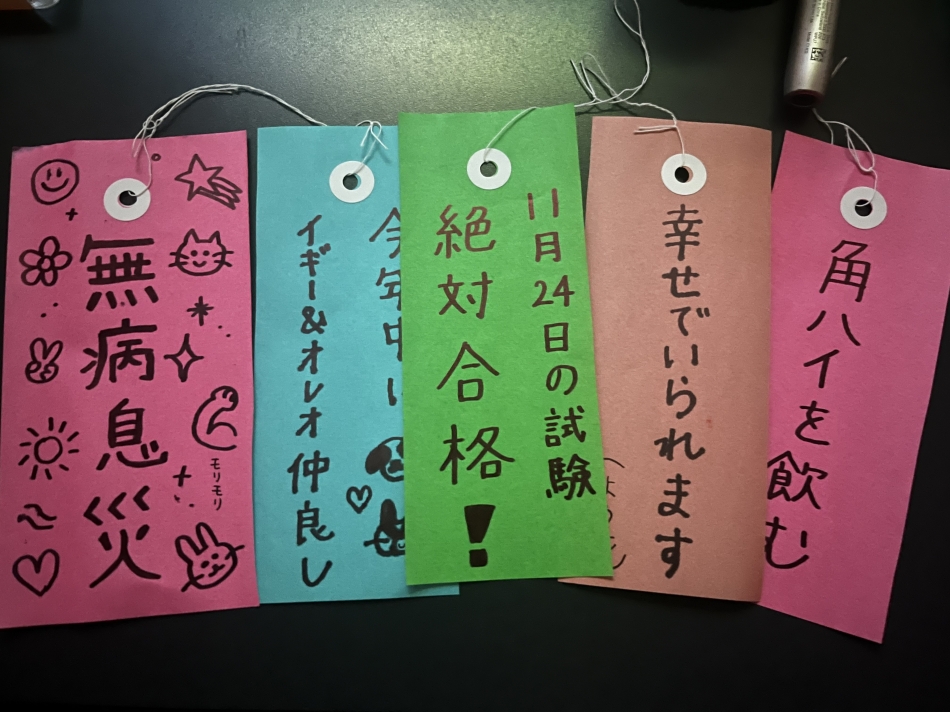 無病息災
モリモリ
今年中
イギー&オレオ仲良し
11月24日の試験
絶対合格!
幸せでいられます
角ハイを飲む